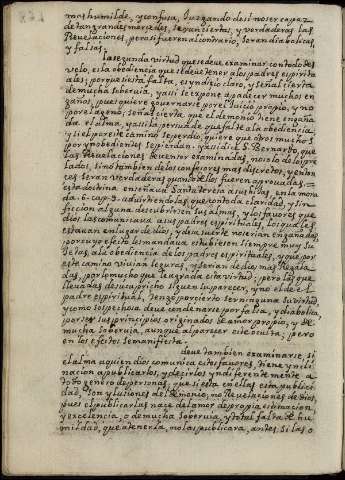 mas humilde, y confusa, Juzgando de si no ser capaz
de tan grandes mercedes, seran ciertas, y verdaderas las
Revelaciones, pero si fueren al contrario, seran diabolicas,
y falsas.
La segunda virtud que se deve examinar con todo des
velo, es la obediencia que se deve tener a los padres espiritu
ales; porque si esta falta, es yndicio claro, y señal cierta
de mucha soberuia, y asi se expone a padecer muchos en
gaños, pues quiere governarse por el Juicio propio, y no
por el ageno; señal cierta que el demonio tiene engaña
da el alma, y asi la persuade que falte a la obediencia,
y si el por este camino se perdio, quiere que otros muchos
por ynobedientes se pierdan. y asi dice S. Bernardo, que
las Revelaciones deven ser examinadas, no solo de los pre
lados, sino tambien de los confesores mas discretos, y enton
ces seran verdaderas quando de ellos fueren aprovadas.
esta doctrina enseñava Santa Teresa a sus hijas, en la mora
da 6. cap. 3. advirtiendolas que con toda claridad, y sin
ficcion alguna descubriesen sus almas, y los favores que
dios las comunicava a sus padres espirituales, los quales
estavan en lugar de dios, y de esta suerte no serian engañadas
por cuyo efecto les mandava estubiesen siempre muy su
jetas, a la obediencia de los padres espirituales, y que por
este camino vivian seguras, y serian de dios mas Regala
das, por lo mucho que le agrada esta virtud; pero las que
llevadas de su capricho siguen su parecer, y no el de el
padre espiritual, tengo por cierto ser ninguna su virtud,
y como sospechosa deve condenarse por falsa, y diabolica,
por ser sus principios originados de amor propio, y de
mucha soberuia, aunque al parecer este oculta, pero
en los efectos se manifiesta.
deve tambien examinarse, si
el alma a quien dios comunica estos favores, tiene yncli
nacion a publicarlos, y decirlos yndiferentemente a
todo genero de personas, que si esta en ellas esta publici
dad, son ylusiones del demonio, no Revelaciones de dios,
pues el publicarlas nace del amor de propia estimacion
y excelencia, o de mucha soberuia, y total falta de hu
mildad, que a tenerla, no las publicara, antes si las o